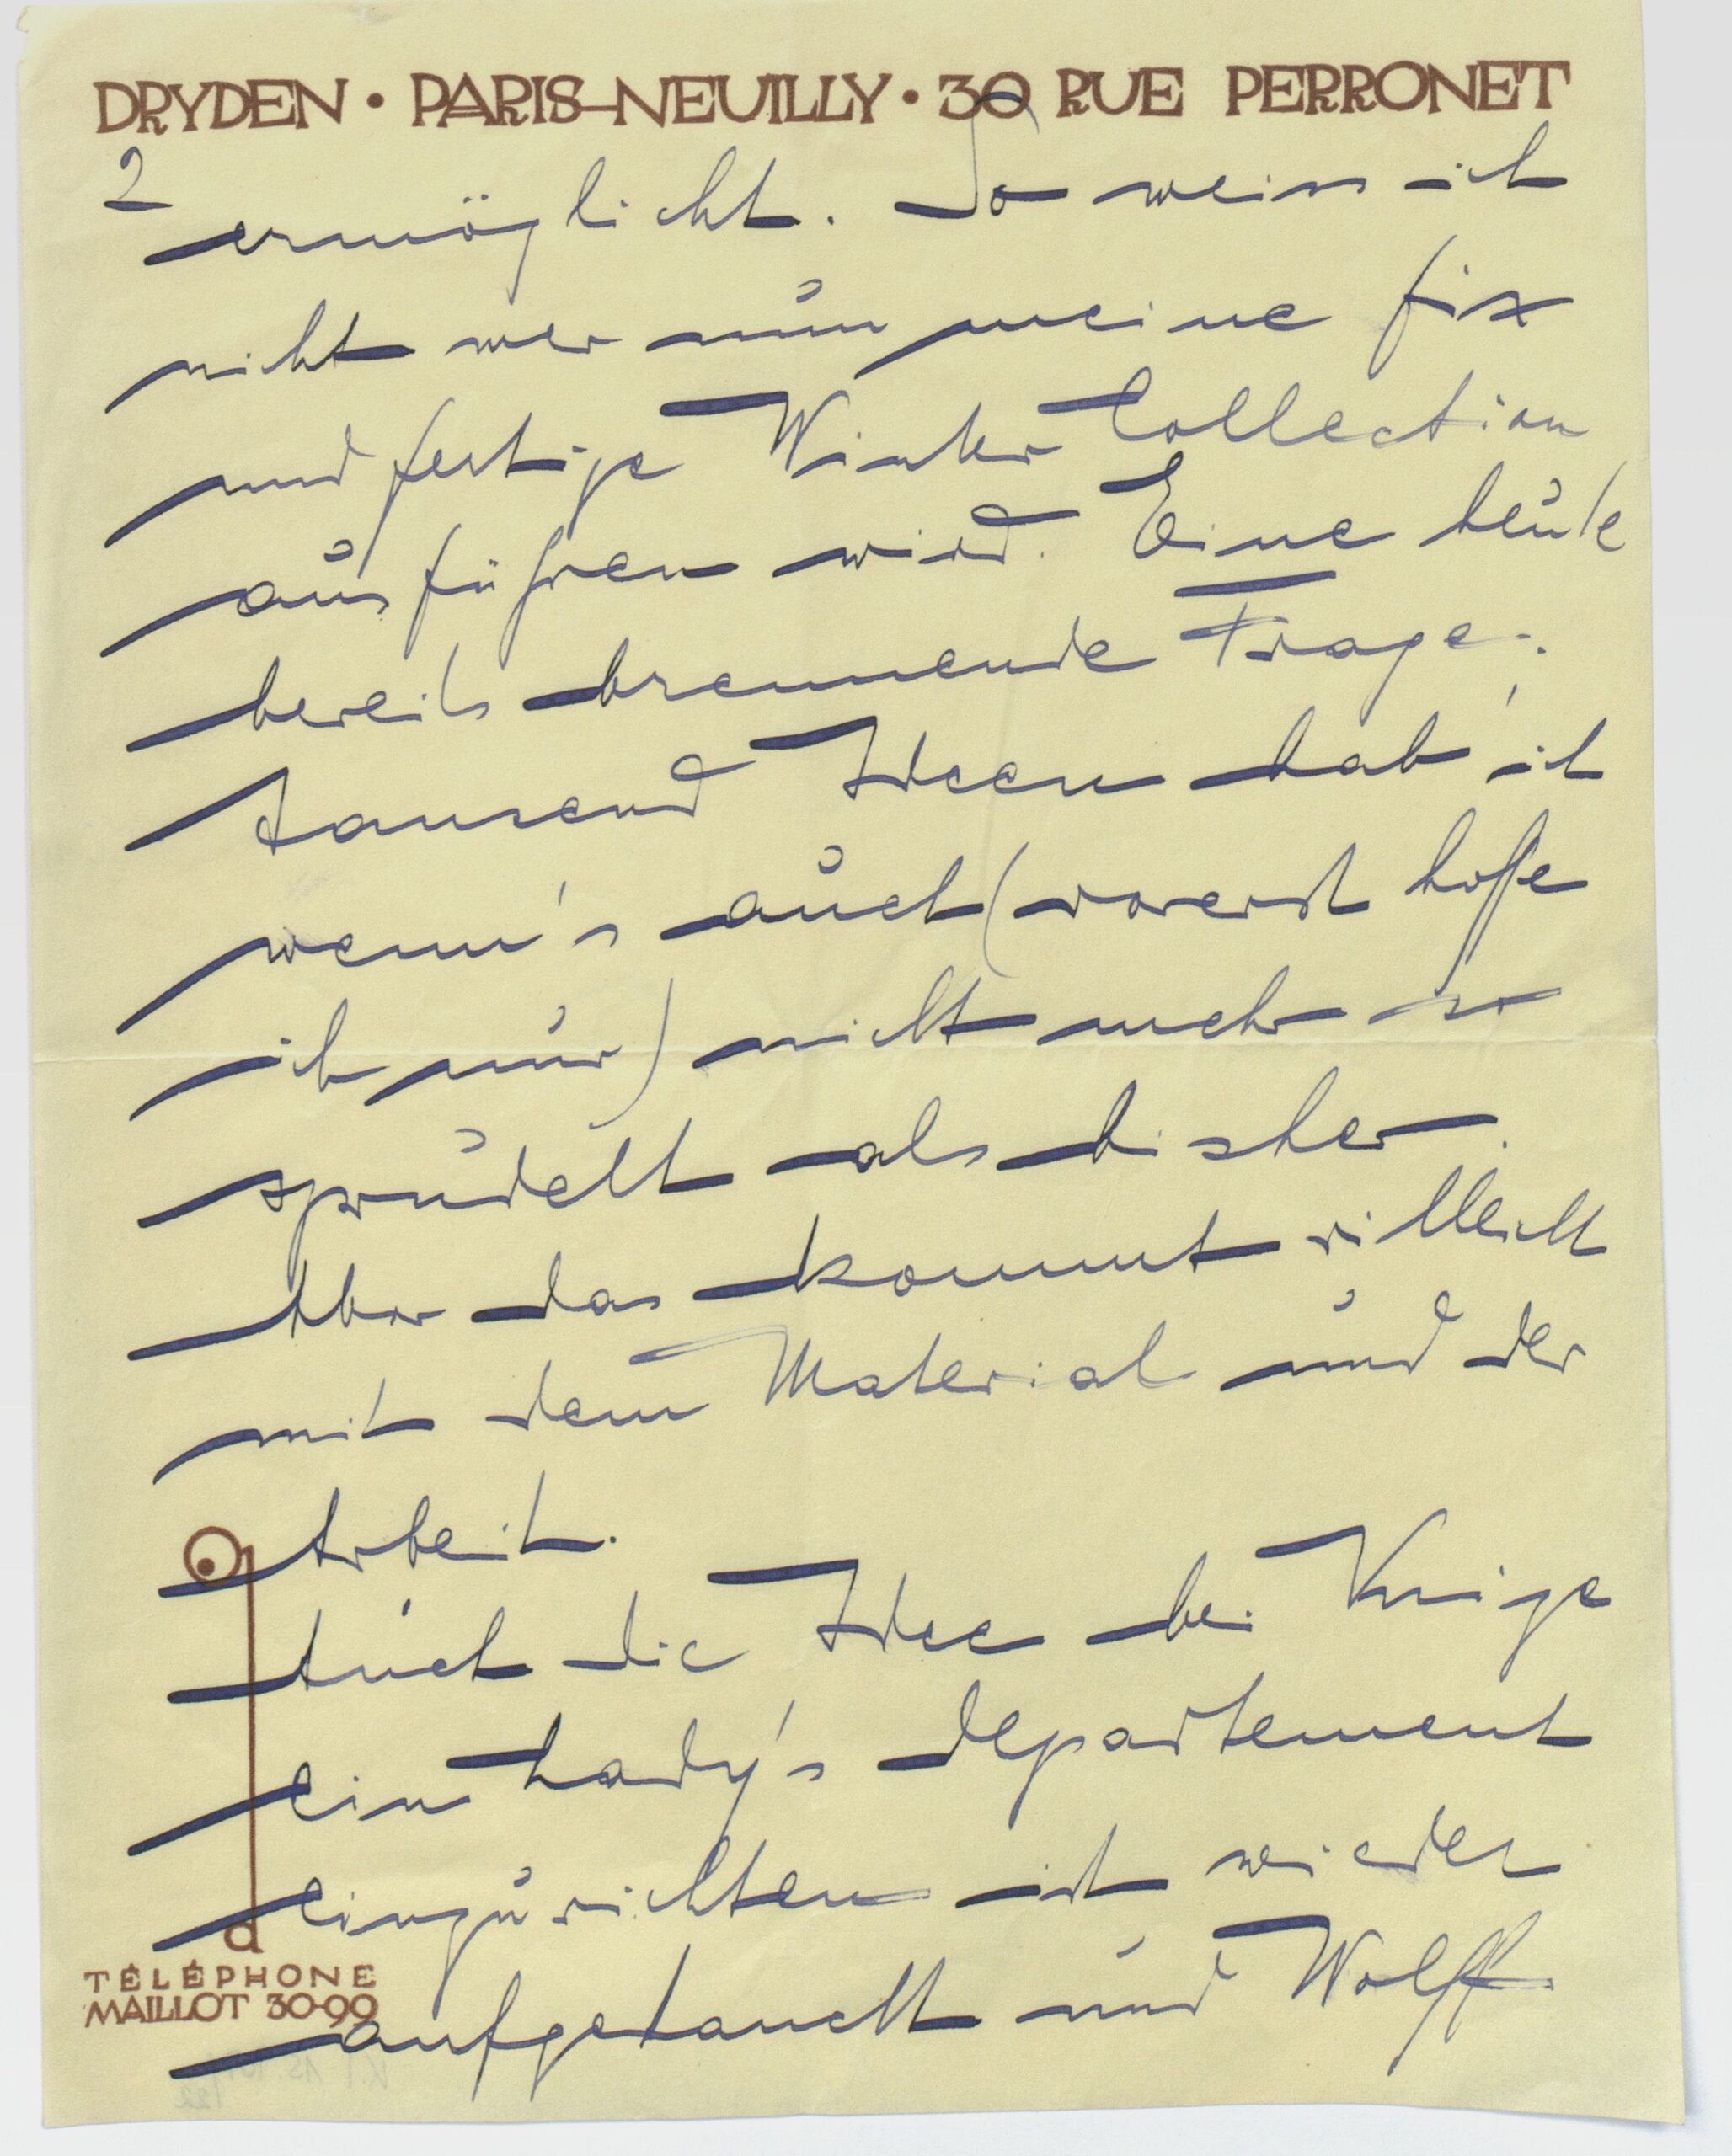 DRYDEN • PARIS–NEUILLY • 30 RUE PERRONET
2
ermöglicht. So weiss ich
nicht wer nun meine fix
und fertige Winter Collection
ausführen wird. Eine heute
bereits brennende Frage.
tausend Ideen hab' ich
wenn's auch (vorerst hoffe
ich nur) nicht mehr so
sprudelt als bisher.
Aber das kommt villeicht
mit dem Material und der
Arbeit.
Auch die Idee bei Knige
ein Lady's departement
einzurichten ist wieder
aufgetaucht und Wolff
d
TÉLÉPHONE
MAILLOT 30-90